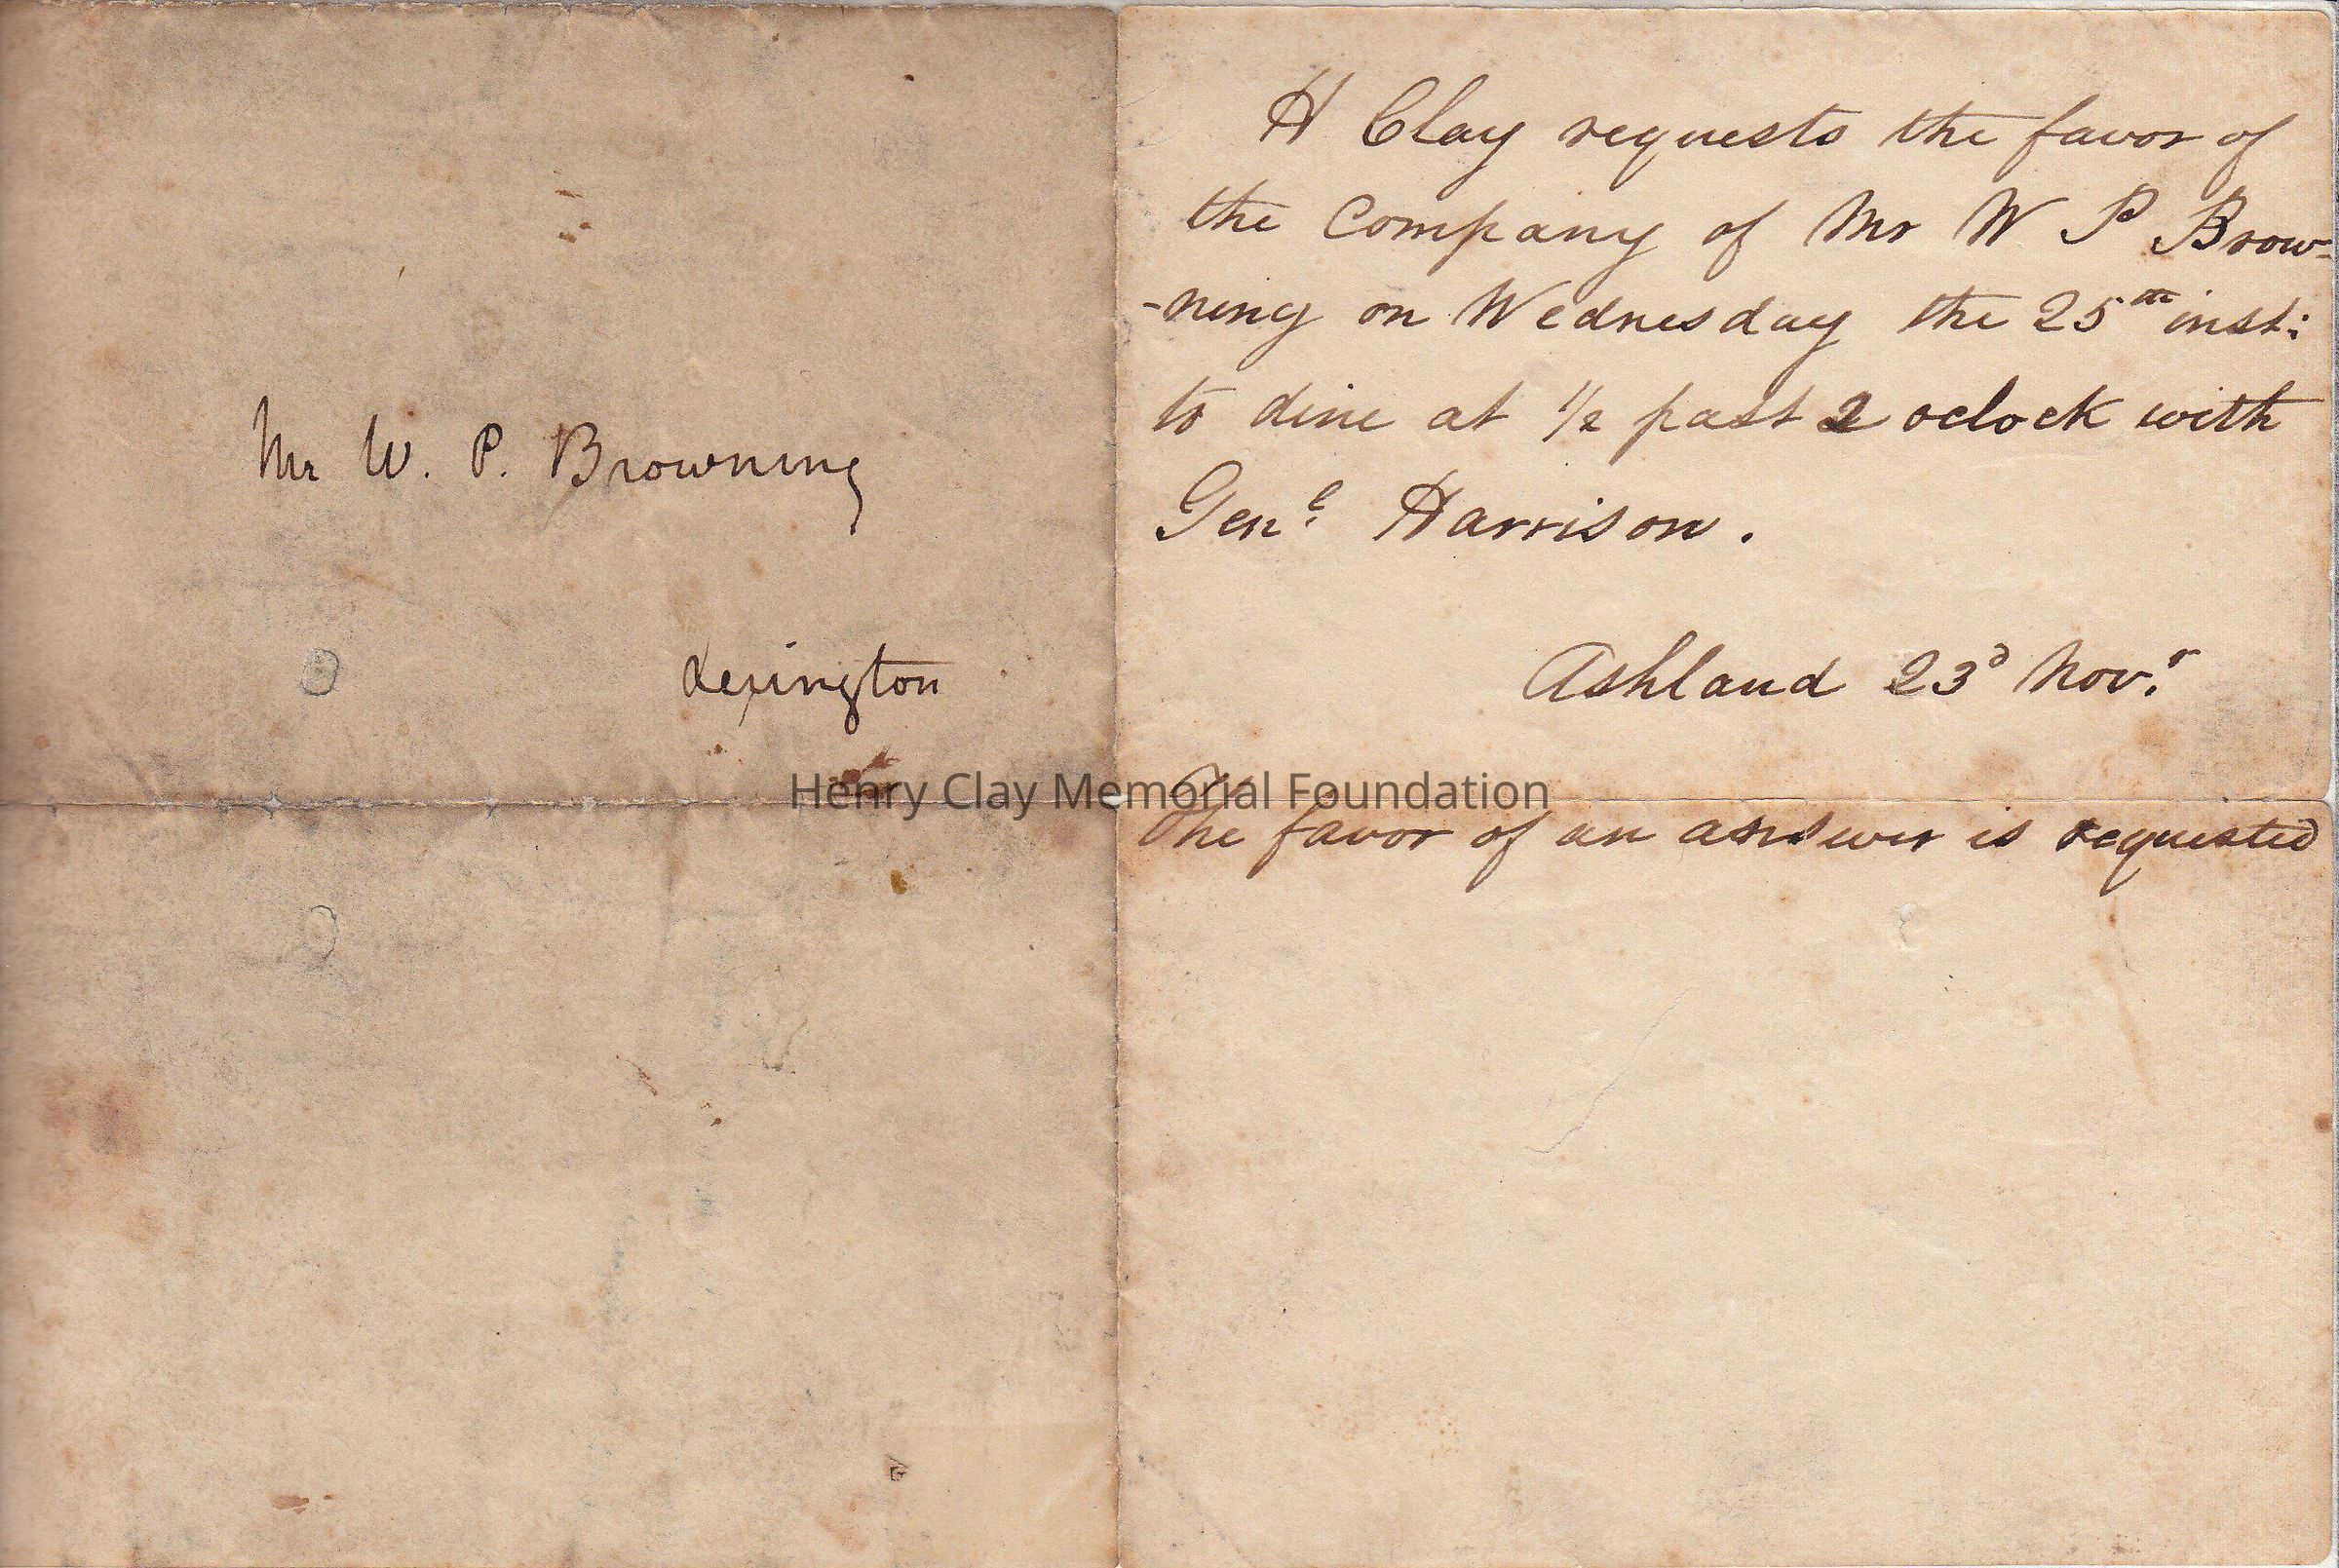 Mr W. P. Browning
Lexington
H Clay requests the favor of
the Company of Mr W P Brow-
-ning on Wednesday the 25th inst:
to dine at 1/2 past 2 oclock with
Genl Harrison.
Ashland 23d Novr
The favor of an answer is requested
Henry Clay Memorial Foundation